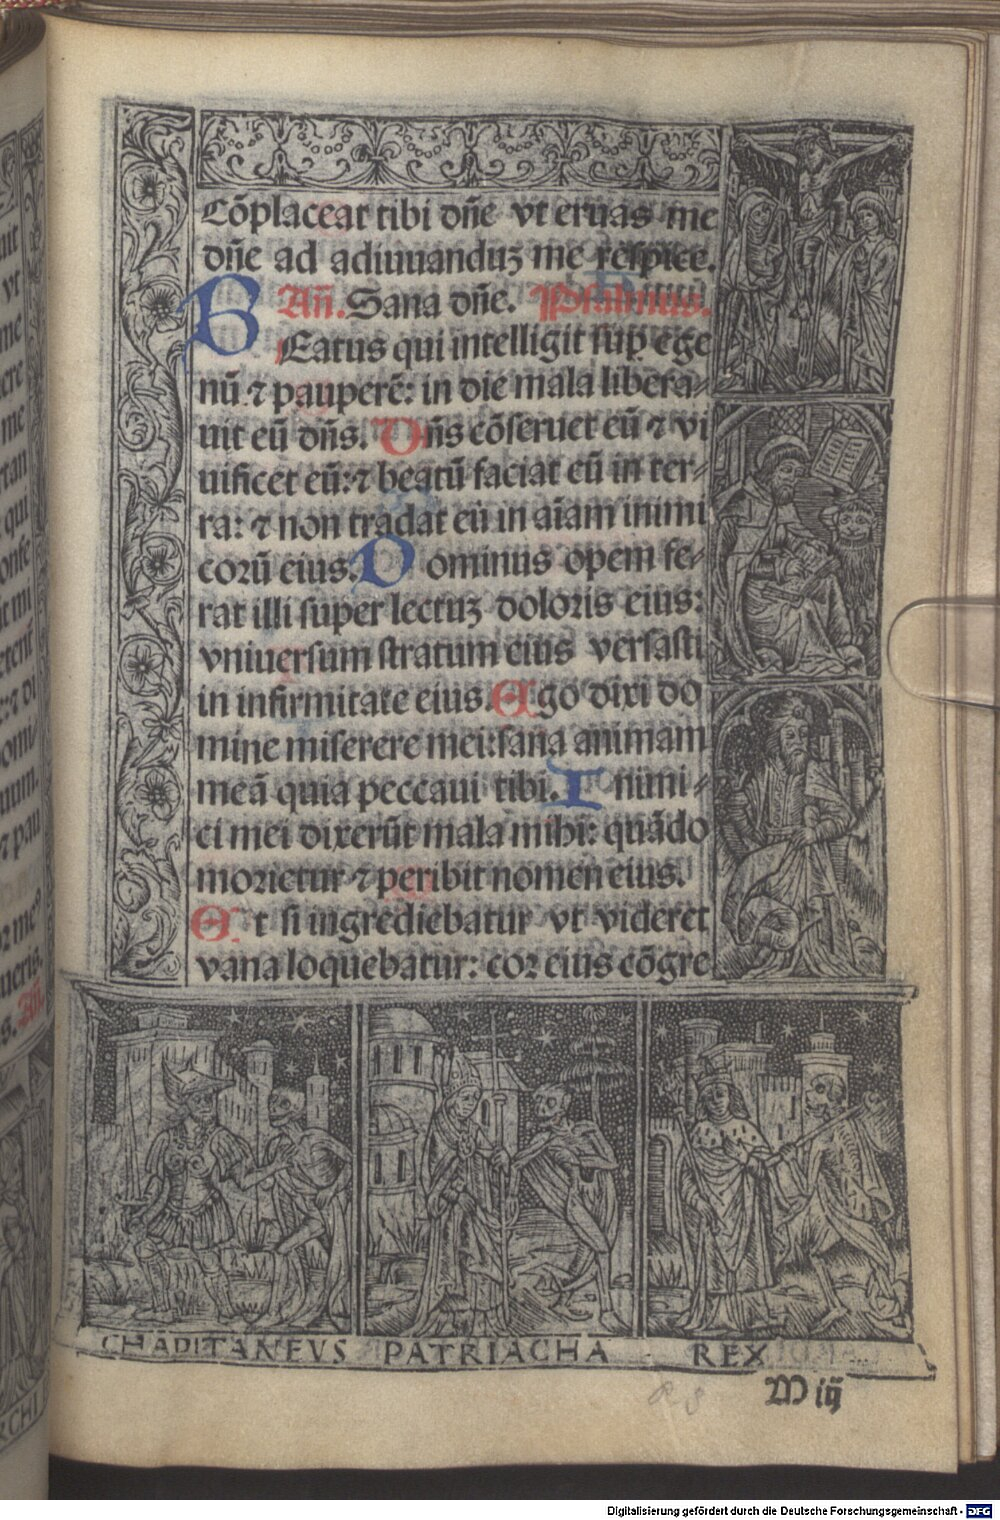 Cōplaceat tibi dn̄e vt eruas me
dn̄e ad adiuuanduꝫ me respice.
An̄. Sana dn̄e. Psalmus.
BEatus qui intelligit suꝑ ege
nū ⁊ pauperē: in die mala libera⸗
uit eū dn̄s. Dn̄s cōseruet eū ⁊ vi
uificet eū: ⁊ beatū faciat eū in ter⸗
ra: ⁊ non tradat eū in aīam inimi
corū eius. Dominus opem fe⸗
rat illi super lectuꝫ doloris eius:
vniuersum stratum eius versasti
in infirmitate eius. Ego dixi do
mine miserere mei: sana animam
meā quia peccaui tibi. Inimi⸗
ci mei dixerūt mala mihi: quādo
morietur ⁊ peribit nomen eius.
Et si ingrediebatur vt videret
vana loquebatur: cor eius cōgre
CHĀDITANEVS PATRIACHA REX
M iij
Digitalisierung gefördert durch die Deutsche Forschungsgemeinschaft - DFG